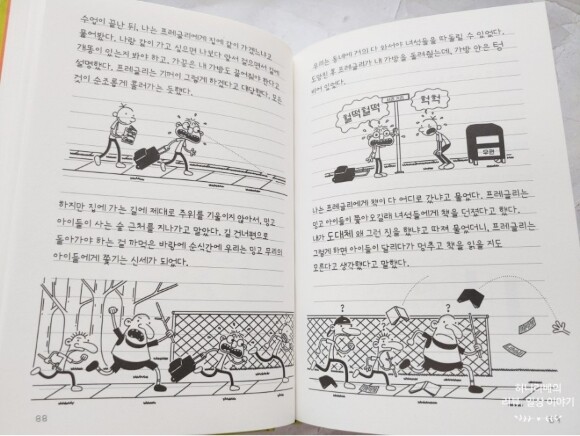 수업이 끝난 뒤, 나는 프레글리에게 집에 같이 가겠느냐고
물어봤다. 나랑 같이 가고 싶으면 나보다 앞서 걸으면서 길에
개똥이 있는지 봐야 하고, 가끔은 내 가방도 끌어줘야 한다고
설명했다. 프레글리는 기꺼이 그렇게 하겠다고 대답했다. 모든
것이 순조롭게 흘러가는 듯했다.
하지만 집에 가는 길에 제대로 주위를 기울이지 않아서, 밍고
아이들이 사는 숲 근처를 지나가고 말았다. 길 건너편으로
돌아가야 하는 걸 까먹은 바람에 순식간에 우리는 밍고 무리의
아이들에게 쫓기는 신세가 되었다.
88
우리는 동네에 거의 다 와서야 녀석들을 따돌릴 수 있었다.
도망친 후 프레글리가 내 가방을 돌려줬는데, 가방 안은 텅
비어 있었다.
헐떡헐떡
헉헉
우편
나는 프레글리에게 책이 다 어디로 갔냐고 물었다. 프레글리는
밍고 아이들이 쫓아오길래 녀석들에게 책을 던졌다고 했다.
내가 도대체 왜 그런 짓을 했냐고 따져 물었더니, 프레글리는
그렇게 하면 아이들이 달리다가 멈추고 책을 읽을 지도
모른다고 생각했다고 말했다.
?
?
리뷰, 일상 이야기